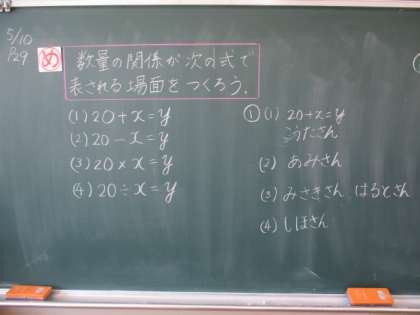 5/10
P29
め
数量の関係が次の式で
表される場面をつくろう.
(1) 20+x=y
(2) 20-x=y
(3) 20×x=y
(4) 20÷x=y
① (1) 20+x=y
こうたさん
(2) あみさん
(3) みさきさん はるとさん
(4) しほさん